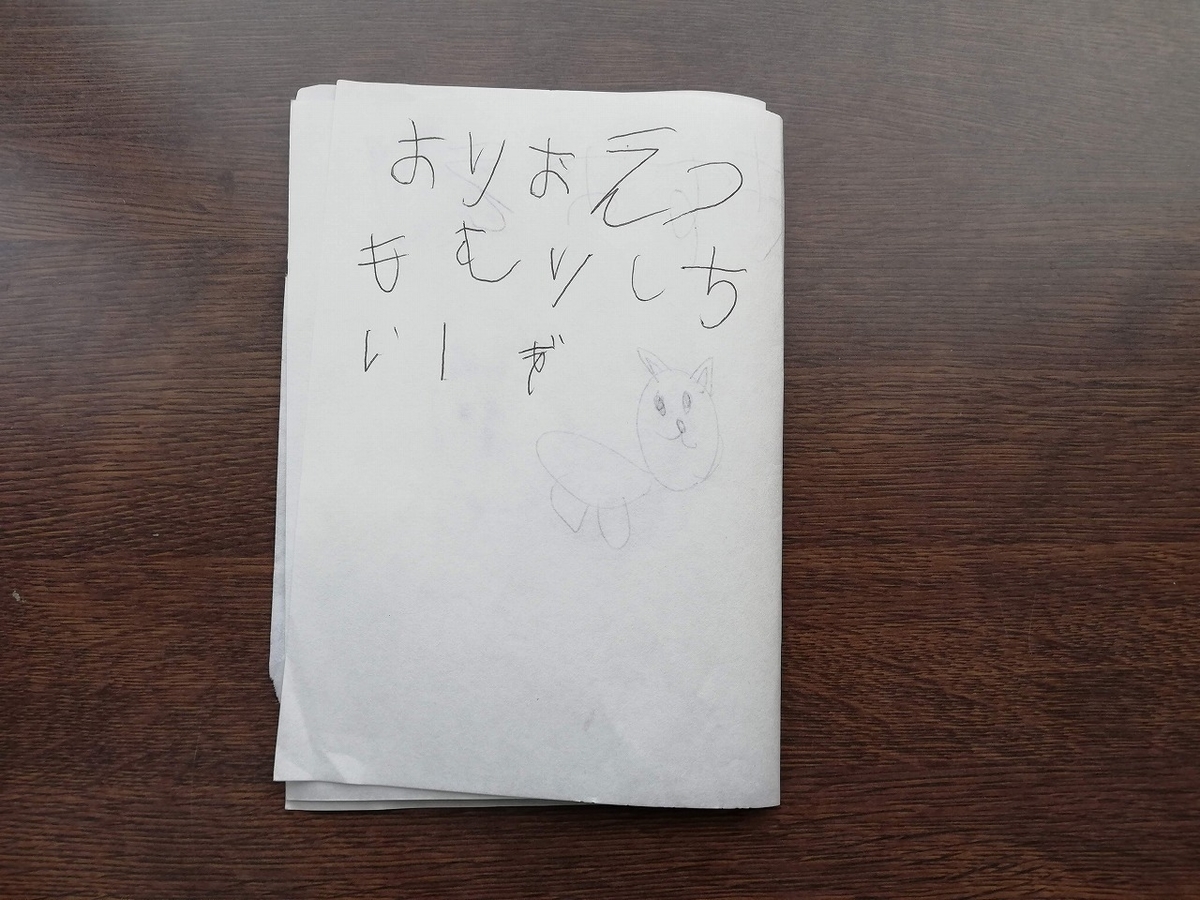 おりおえつ
もむりしち
いしぎ